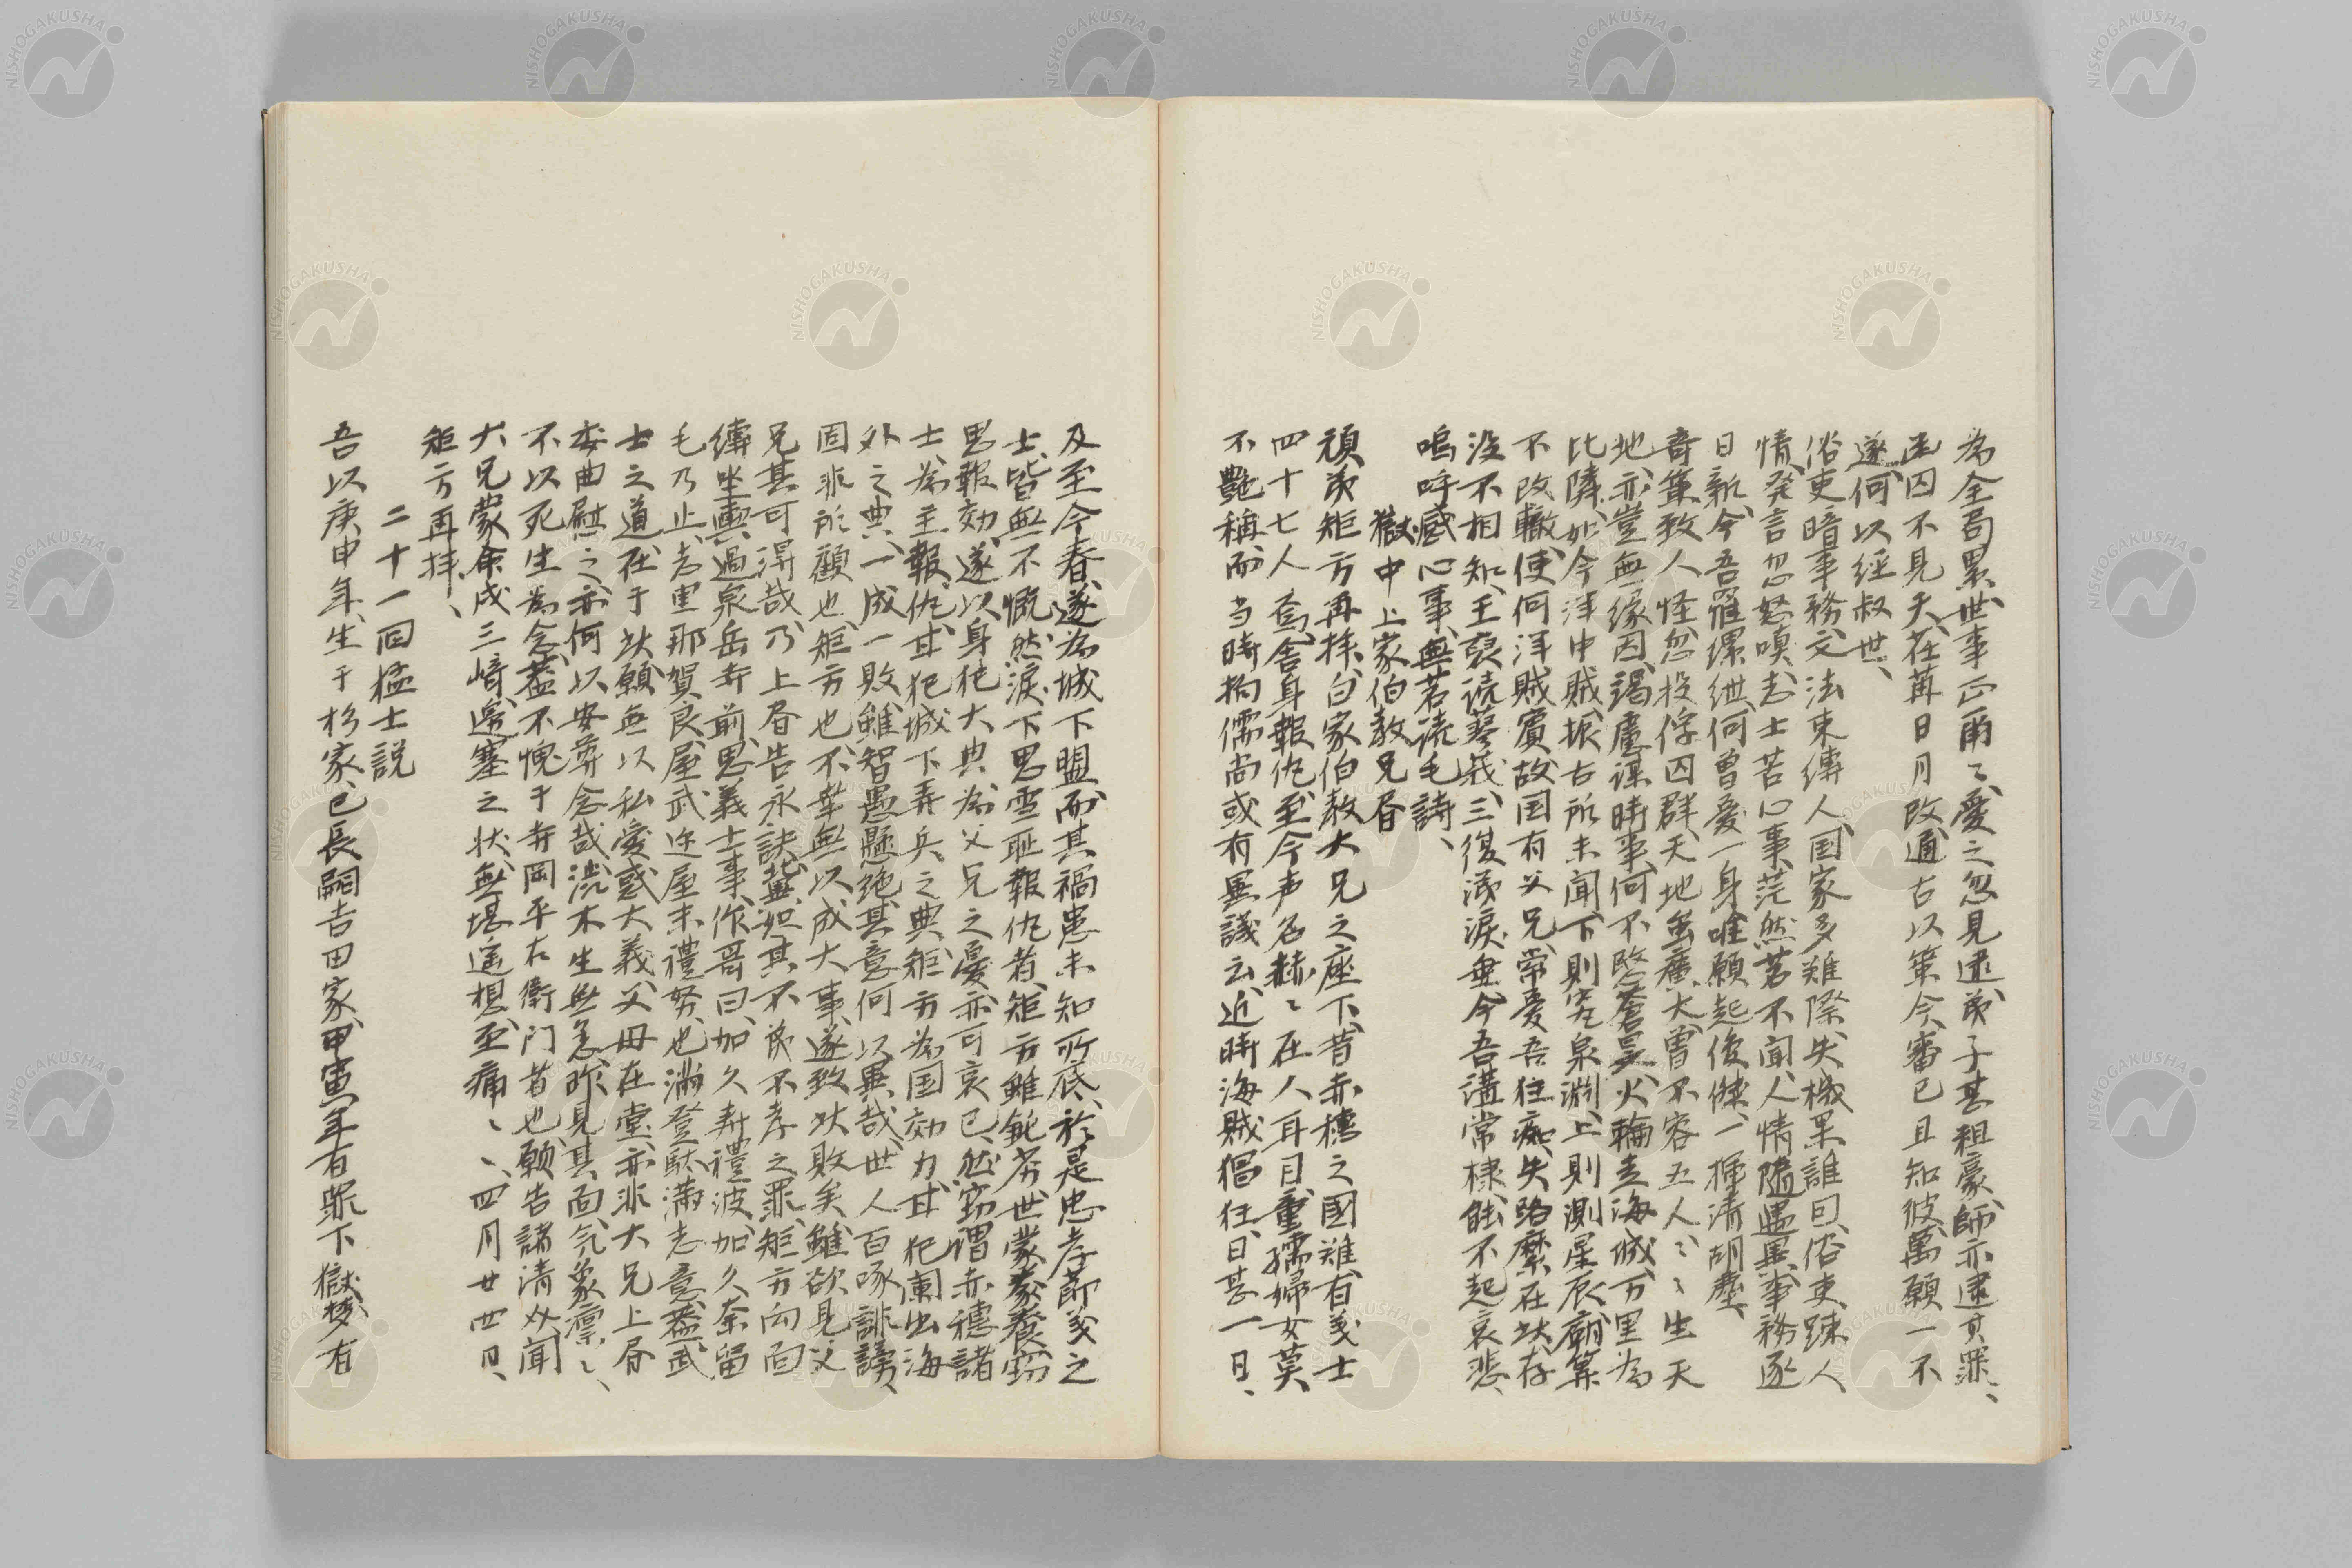 為全局累、世事正爾々、愛之忽見逮、弟子甚粗豪、師亦逮其罪、
幽囚不見天、荏苒日月改、通古以策今、審己且知彼、萬願一不
遂、何以経叔世、
俗吏暗事務、文法束縛人、国家多難際、失機果誰曰、俗吏疎人
情、発言忽怒嗔、志士苦心事、茫然若不聞、人情隨遇異、事務逐
日新、今吾罹縲紲、何曽憂一身、唯願起俊傑、一揮清胡塵、
奇策致人怪、忽投俘囚群、天地虽廣大、曽不容五人、々々生天
地、亦豈無縁因、謁慮謀時事、何不愍蒼旻、火輪走海城、万里為
比隣、如今洋中賊、振古所未聞、下則究泉淵、上則測星辰、廟算
不改轍、使何洋賊賓、故国有父兄、常憂吾狂痴、失路縻在玆、存
没不相知、王裒読蓼莪、三復涕涙垂、今吾講常棣、能不起哀悲、
嗚呼感心事、無若読毛詩、
獄中上家伯教兄書
頑弟矩方再拝、白家伯教大兄之座下、昔赤穂之國難、有義士
四十七人焉、舎身報仇、至今声名赫々在人耳目、童孺婦女莫
不艶稱、而当時拘儒尚或有異議云、近時海賊猖狂、日甚一日、
及至今春、遂為城下盟、而其禍患未知所底、於是忠孝節義之
士、皆無不慨然涙下思雪耻報仇者、矩方雖鈍劣、世蒙豢養、窃
思報効、遂以身犯大典、為父兄之憂、亦可哀已、然窃謂赤穂諸
士、為主報仇、甘犯城下弄兵之典、矩方為国効力、甘犯闌出海
外之典、一成一敗、雖智愚懸絶、其意何以異哉、世人百啄誹謗、
固非所顧也、矩方也不幸無以成大事、遂致玆敗矣、雖欲見父
兄其可得哉、乃上書告永訣、其不弟不孝之罪、矩方向面
縛坐輿過泉岳寺前、思義士事、作哥曰、加久寿禮波、加久奈留
毛乃止、志里那賀良、屋武迩屋未禮努、也滿登駄滿志意、蓋武
士之道在于玆、願無以私愛惑大義、父母在堂、亦非大兄上書
委曲慰之、亦何以安尊念哉、渋木生無恙、昨見其面、気象凛々、
不以死生為念、蓋不愧于寺岡平右衛門者也、願告諸清水聞
大兄蒙命戍三﨑、邊塞之状、無堪遥想、至痛々々、四月廿四日、
矩方再拝、
二十一回猛士説
吾以庚申年、生于杉家、已長嗣吉田家、甲寅年有罪下獄、夢有